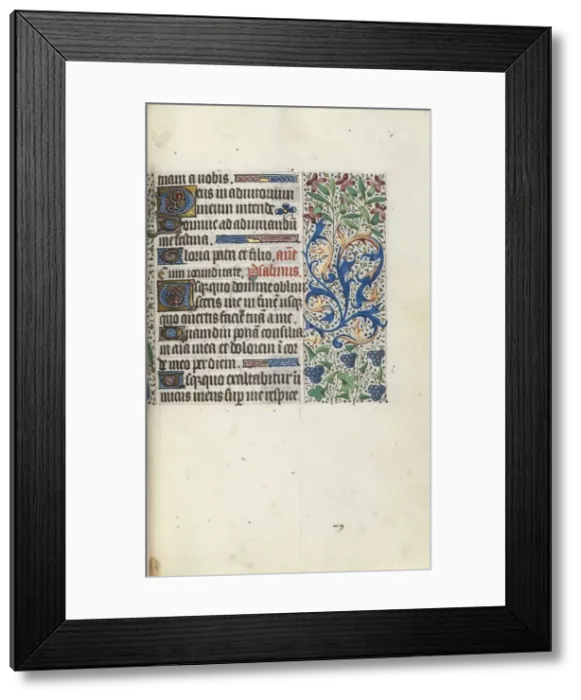 tram a nobis.
Deus in adiutorium
meum intende
Domine ad adiuuandū
me festina.
Gloria patri et filio, añt
Cum iocunditate. psalmus.
Usquo domine obliui
sceris me in finē usq
quo auertis faciē tuā a me.
Quam diu ponā consilia
in aīa mea et dolorem ī cor
de meo per diem.
Usquo exaltabitur ī
micus meus sup me respice